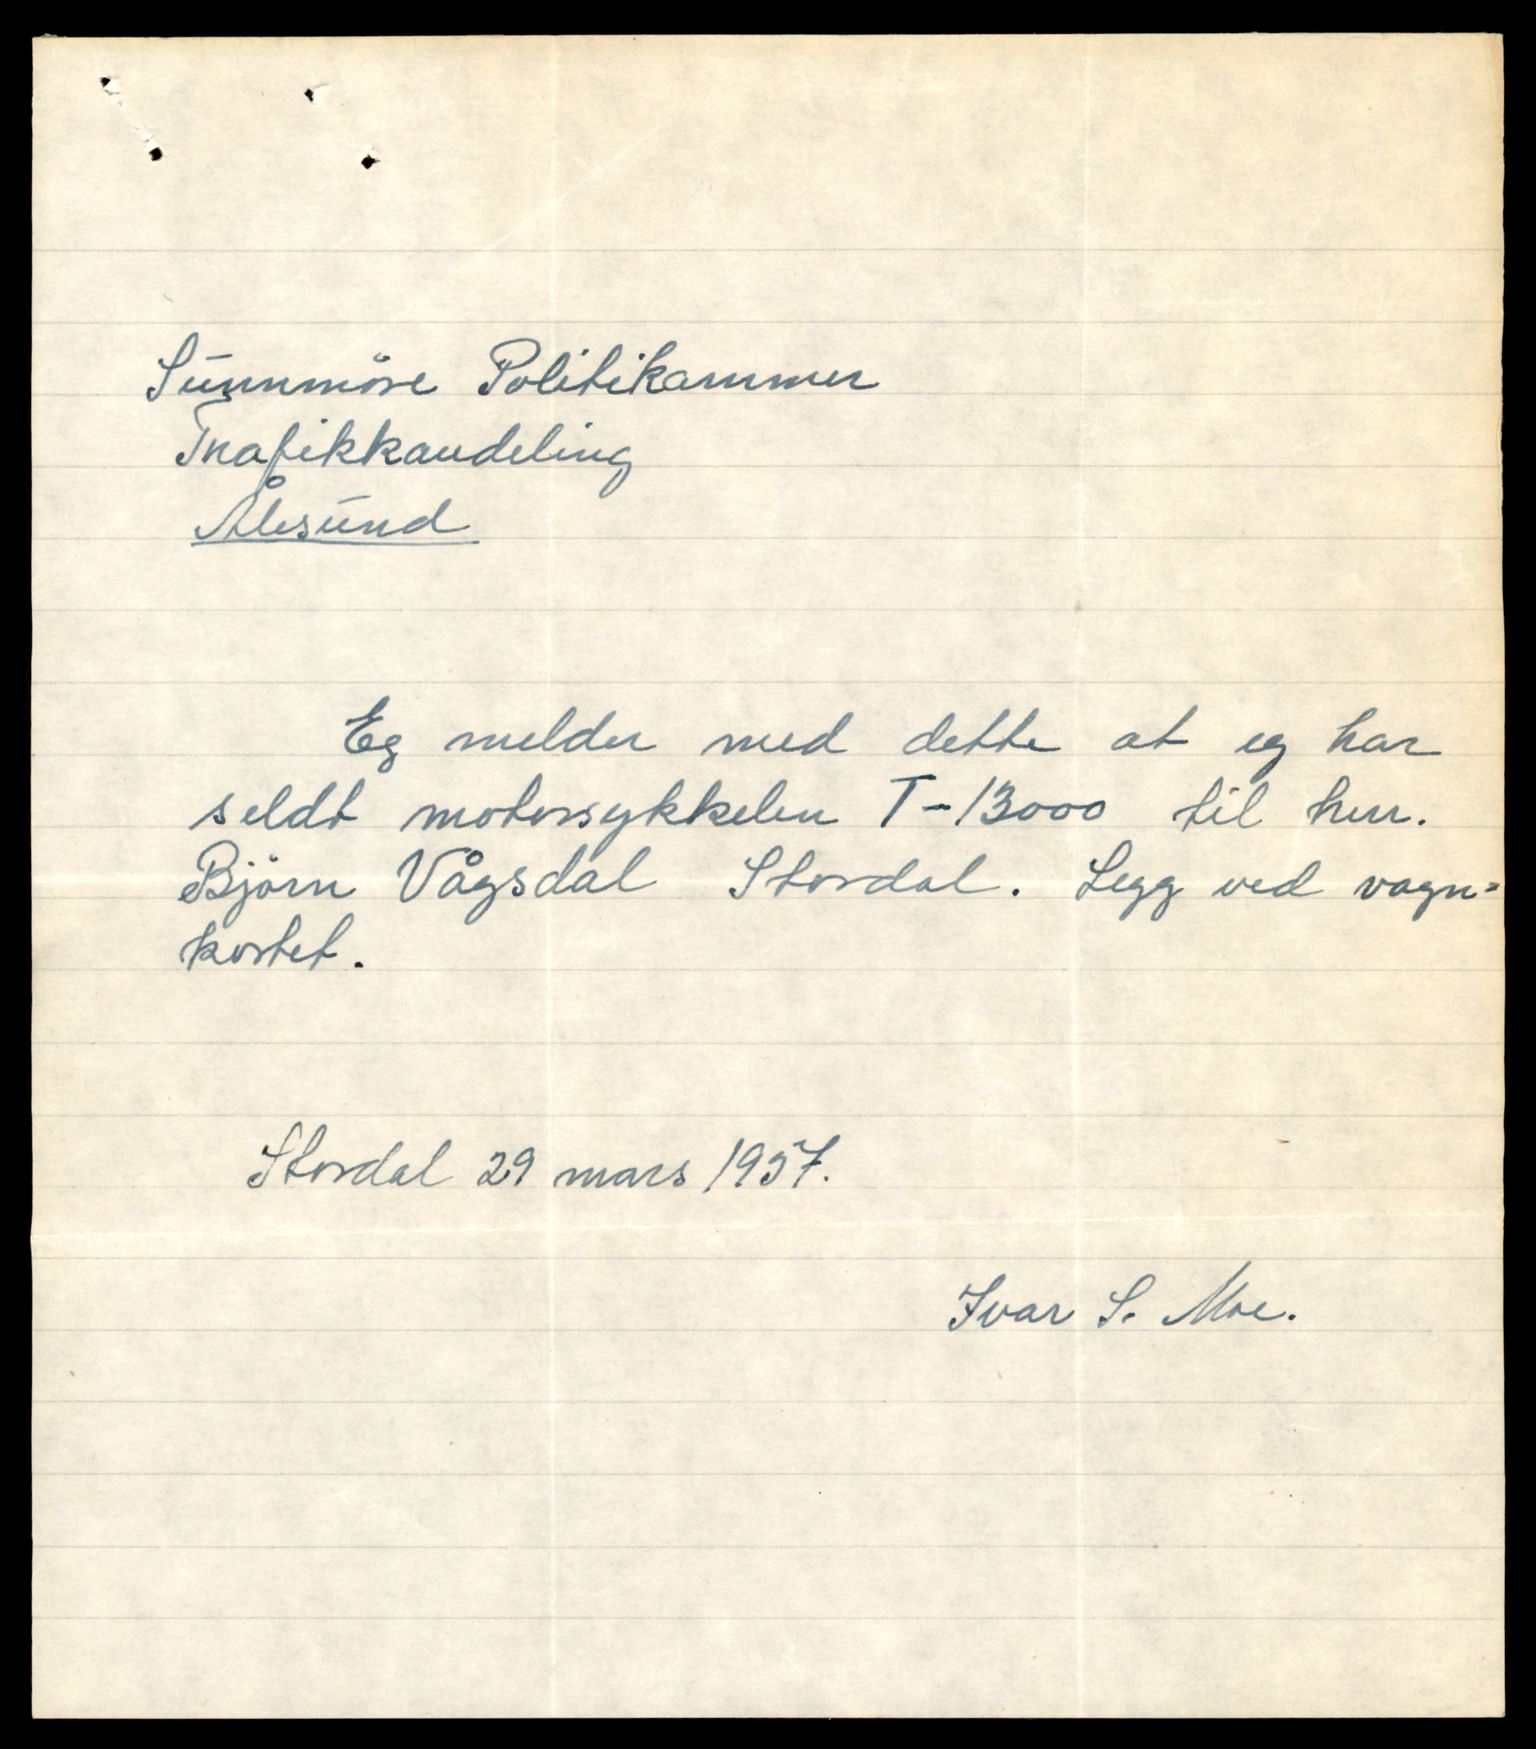 Sunnmöre Politikammer
Trafikkavdeling
Ålesund
Eg melder med dette at eg har
seldt motorsykkelen T-13000 til herr.
Björn Vågsdal Stordal. Legg ved vogn=
kortet.
Stordal 29 mars 1957.
Ivar S. Moe.